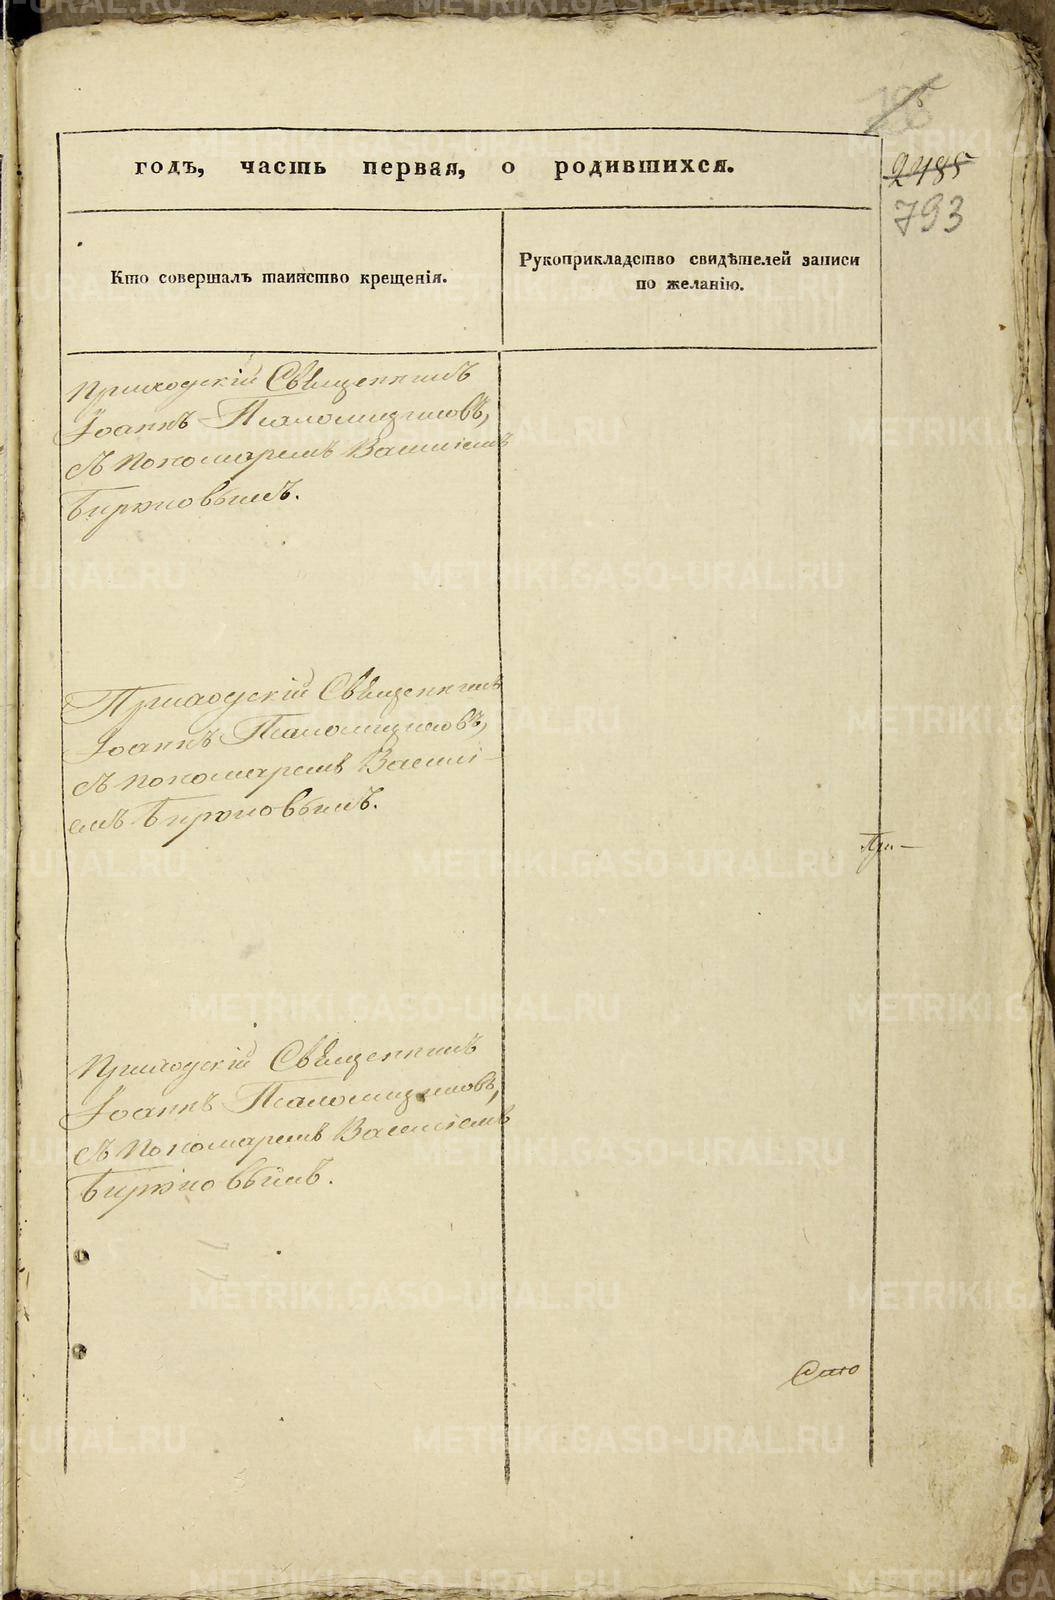 195
годъ, часть первая, о родившихся.
2485
793
Кто совершалъ таинство крещенія.
Рукоприкладство свидѣтелей записи
по желанію.
Приходскій Священникъ
Іоаннъ Псаломщиковъ,
съ пономаремъ Василіемъ
Бирюковымъ.
Приходскій Священникъ
Іоаннъ Псаломщиковъ,
съ пономаремъ Васили-
емъ Бирюковымъ.
При-
Приходскій Священникъ
Іоаннъ Псаломщиковъ,
съ пономаремъ Василіемъ
Бирюковымъ.
METRIKI.GASO-URAL.RU